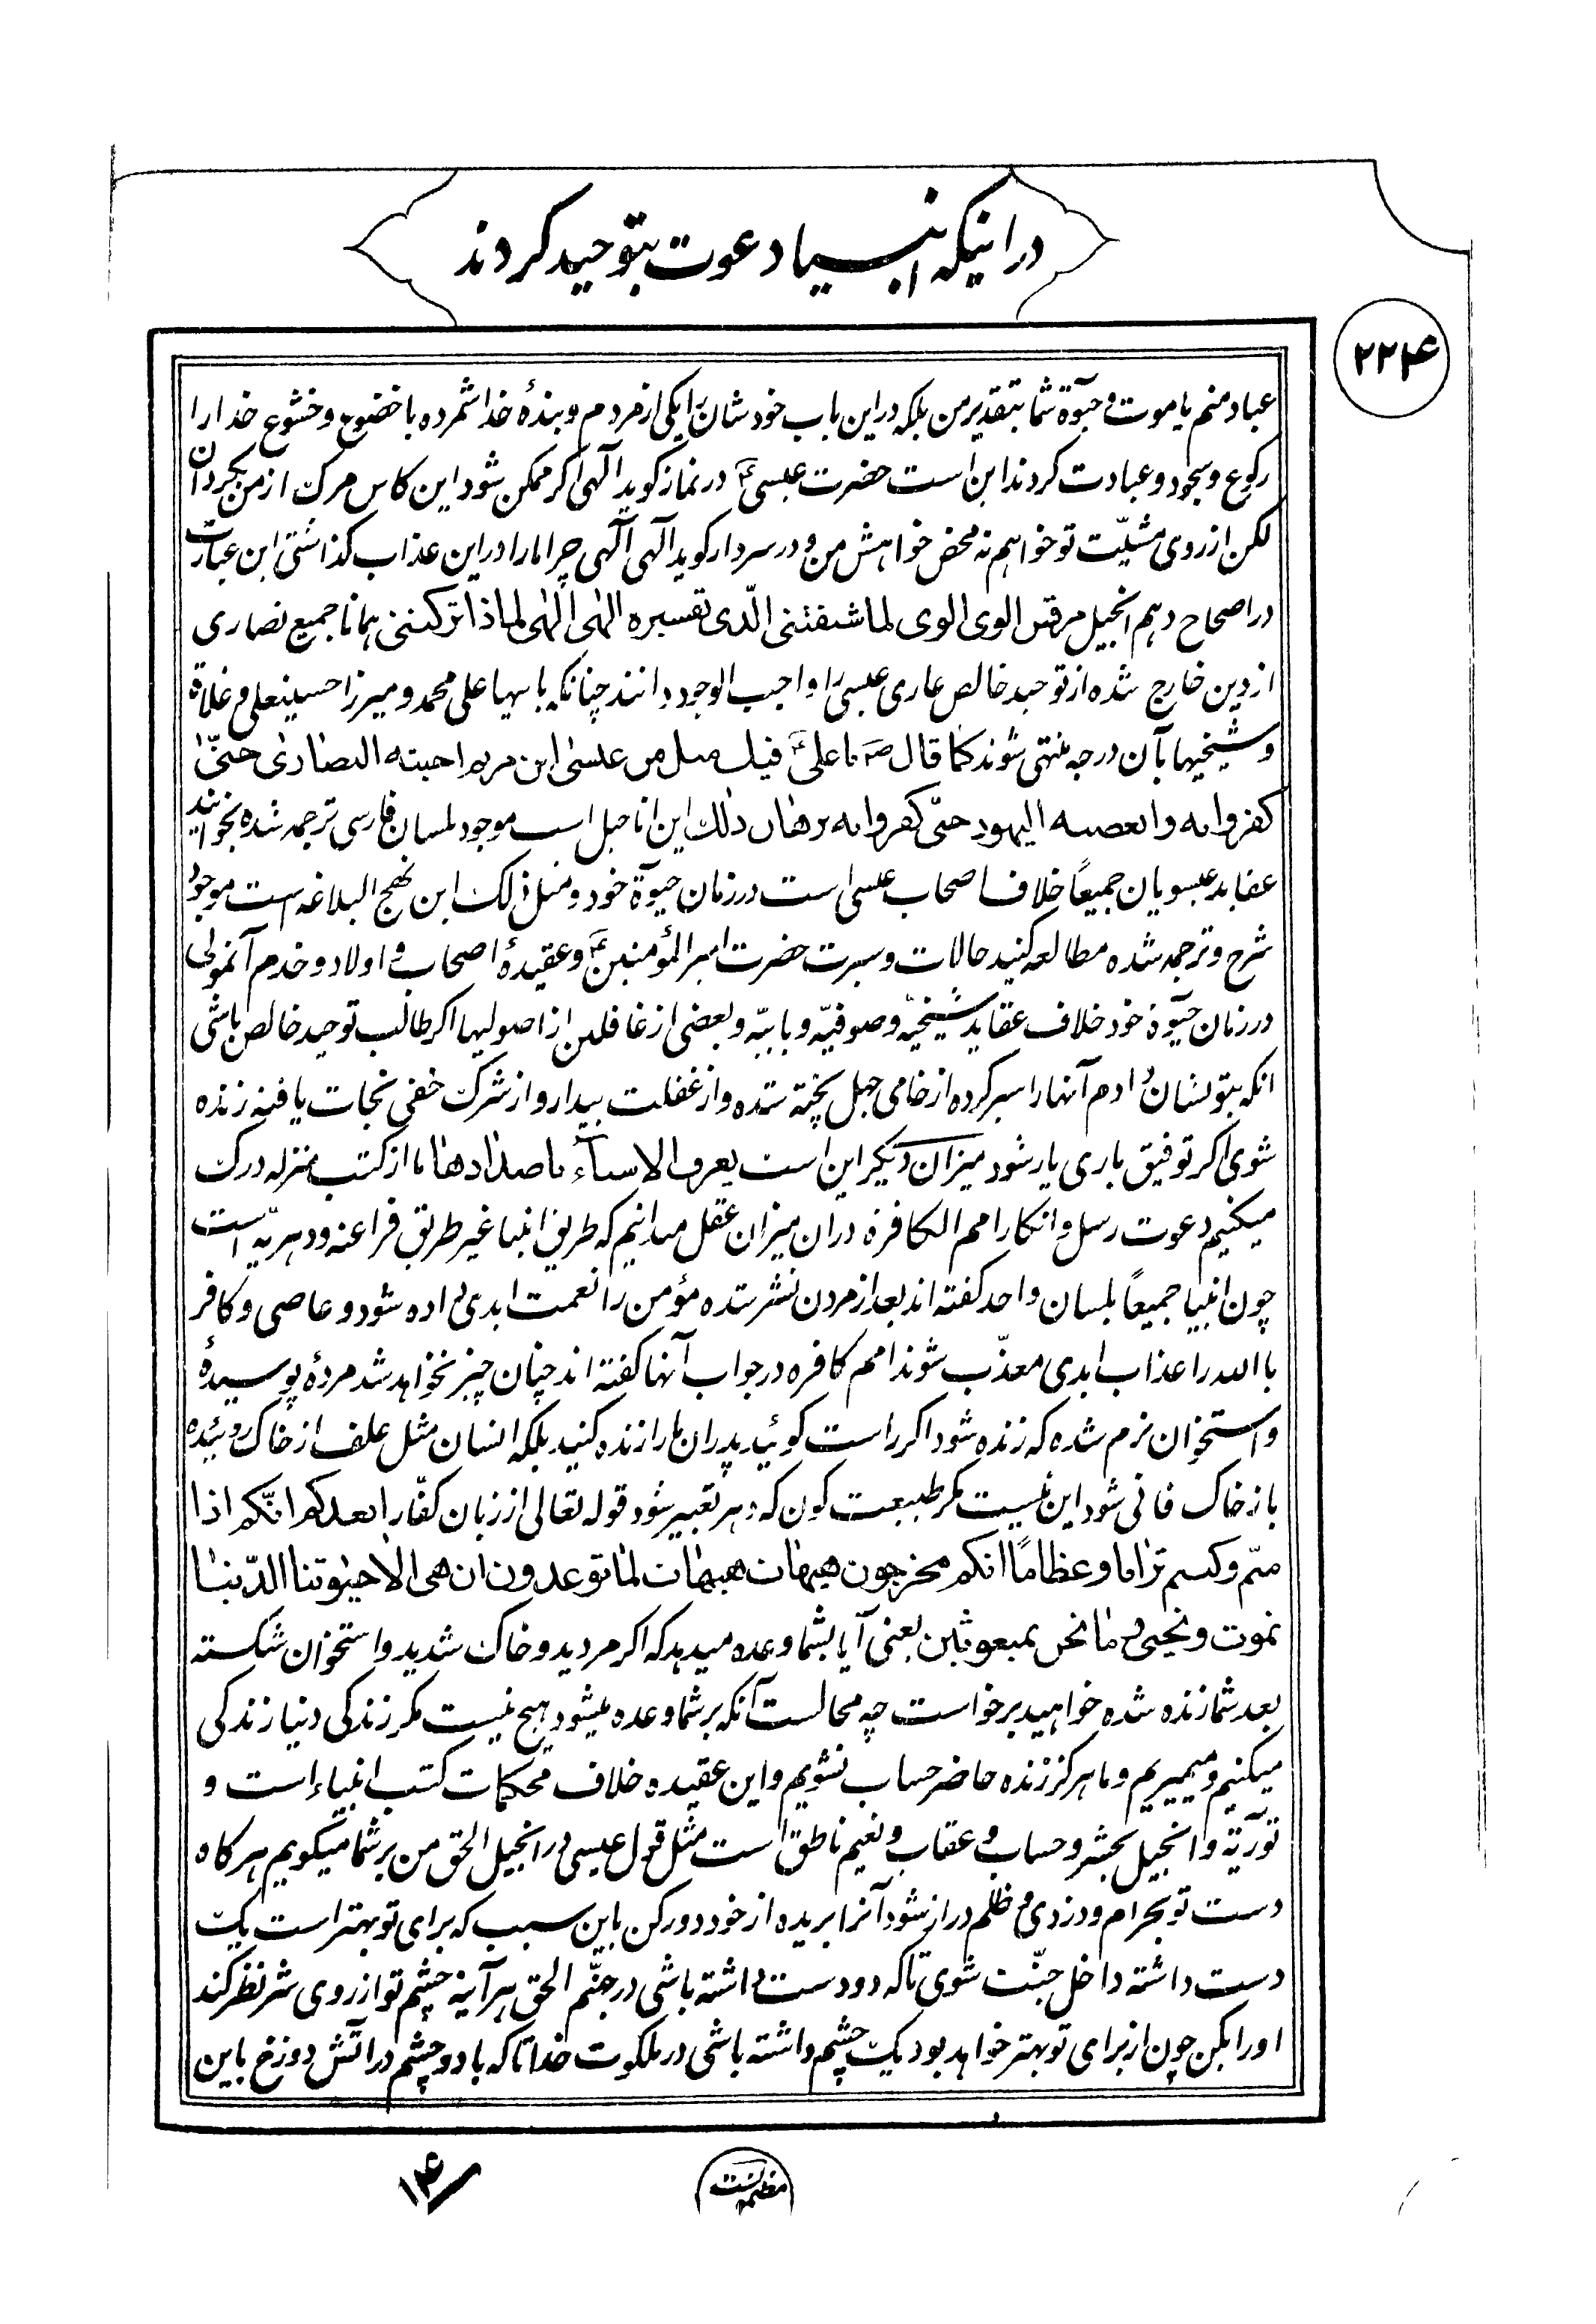 در اینکه انبیا دعوت بتوحید کردند
۲۲۴
عباد منم یا موت و حیوة شما بتقدیر من بلکه در این باب خودشان را یکی از مردم و بندهٔ خدا شمرده با خضوع و خشوع خدا را
رکوع و سجود و عبادت کردند این است حضرت عیسی ع در نماز کوید الهی اکر ممکن شود این کاس مرک از من بکردان
لکن از روی مشیّت تو خواهم نه محض خواهش من و در سردار کوید الهی الهی چرا ما را در این عذاب کذاشتی این عبارت
در اصحاح دهم انجیل مرقس الوی الوی لما شبقتنی الّذی تفسیره الهی الهی لماذا ترکتنی همانا جمیع نصاری
از دین خارج شده از توحید خالص عاری عیسی را واجب الوجود دانند چنانکه بابیها علی محمد و میرزا حسینعلی و غلاة
و شیخیها بآن درجه منتهی شوند کما قال ص یا علی ع فیك مثل من عیسی ابن مریم احبته النصاری حتّی
کفروا به و ابغضه الیهود حتّی کفروا به برهان ذلك این اناجیل است موجود بلسان فارسی ترجمه شده بخوانید
عقاید عیسویان جمیعاً خلاف اصحاب عیسی است در زمان حیوة خود و مثل ذلک این نهج البلاغه است موجود
شرح و ترجمه شده مطالعه کنید حالات و سیرت حضرت امیر المؤمنین ع و عقیدهٔ اصحاب و اولاد و خدم آنمولی
در زمان حیوة خود خلاف عقاید شیخیّه و صوفیّه و بابیّه و بعضی از غافلین از اصولیها اکر طالب توحید خالص باشی
انکه بتو نشان دادم آنها را سیر کرده از خامی جهل پخته شده و از غفلت بیدار و از شرک خفی نجات یافته زنده
شوی اکر توفیق باری یار شود میزان دیکر این است یعرف الاشیآء باضدادها ما از کتب منزله درک
میکنیم دعوت رسل و انکار امم الکافره در ان میزان عقل میدانیم که طریق انبیا غیر طریق فراعنه و دهریّه است
چون انبیا جمیعاً بلسان واحد کفته اند بعد از مردن نشر شده مؤمن را نعمت ابدی داده شود و عاصی و کافر
با الله را عذاب ابدی معذّب شوند امم کافره در جواب آنها کفته اند چنان چیز نخواهد شد مردهٔ پوسیدهٔ
و استخوان نرم شده که زنده شود اکر راست کوئید پدران ما را زنده کنید بلکه انسان مثل علف از خاک روئیده
باز خاک فانی شود این نیست مکر طبیعت کون که دهر تعبیر شود قوله تعالی از زبان کفّار ایعدکم انّکم اذا
متّم و کنتم ترابا و عظاماً انکم مخرجون هیهات هیهات لما توعدون ان هی الا حیوتنا الدّنیا
نموت و نحیی و ما نحن بمبعوثین یعنی آیا بشما وعده میدهد که اکر مردید و خاک شدید و استخوان شکسته
بعد شما زنده شده خواهید برخواست چه محالست آنکه بر شما وعده میشود هیچ نیست مکر زندکی دنیا زندکی
میکنیم و میمیریم و ما هرکز زنده حاضر حساب نشویم و این عقیده خلاف محکمات کتب انبیاء است و
توریة و انجیل بحشر و حساب و عقاب و نعیم ناطق است مثل قول عیسی در انجیل الحق من بر شما میکویم هر کاه
دست تو بحرام و دزدی و ظلم دراز شود آنرا بریده از خود دور کن باین سبب که برای تو بهتر است یک
دست داشته داخل جنّت شوی تا که دو دست داشته باشی در جهنّم الحق هر آینه چشم تو از روی شر نظر کند
او را بکن چون از برای تو بهتر خواهد بود یک چشم داشته باشی در ملکوت خدا تا که با دو چشم در اتش دوزخ باین
۱۴